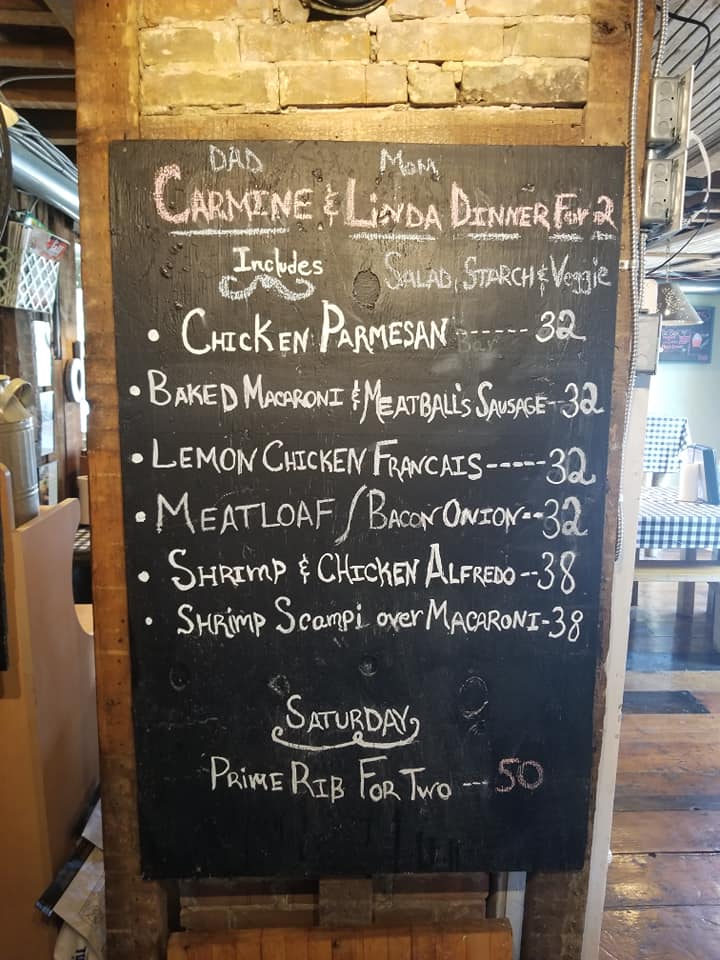 DAD MOM
CARMINE & LINDA DINNER FOR 2
Includes SALAD, STARCH & Veggie
• CHICKEN PARMESAN ------ 32
• BAKED MACARONI & MEATBALL'S SAUSAGE--32
• LEMON CHICKEN FRANCAIS-----32
• MEATLOAF / BACON ONION--32
• SHRIMP & CHICKEN ALFREDO--38
• SHRIMP Scampi over MACARONI-38
SATURDAY
PRIME RIB FOR TWO --- 50